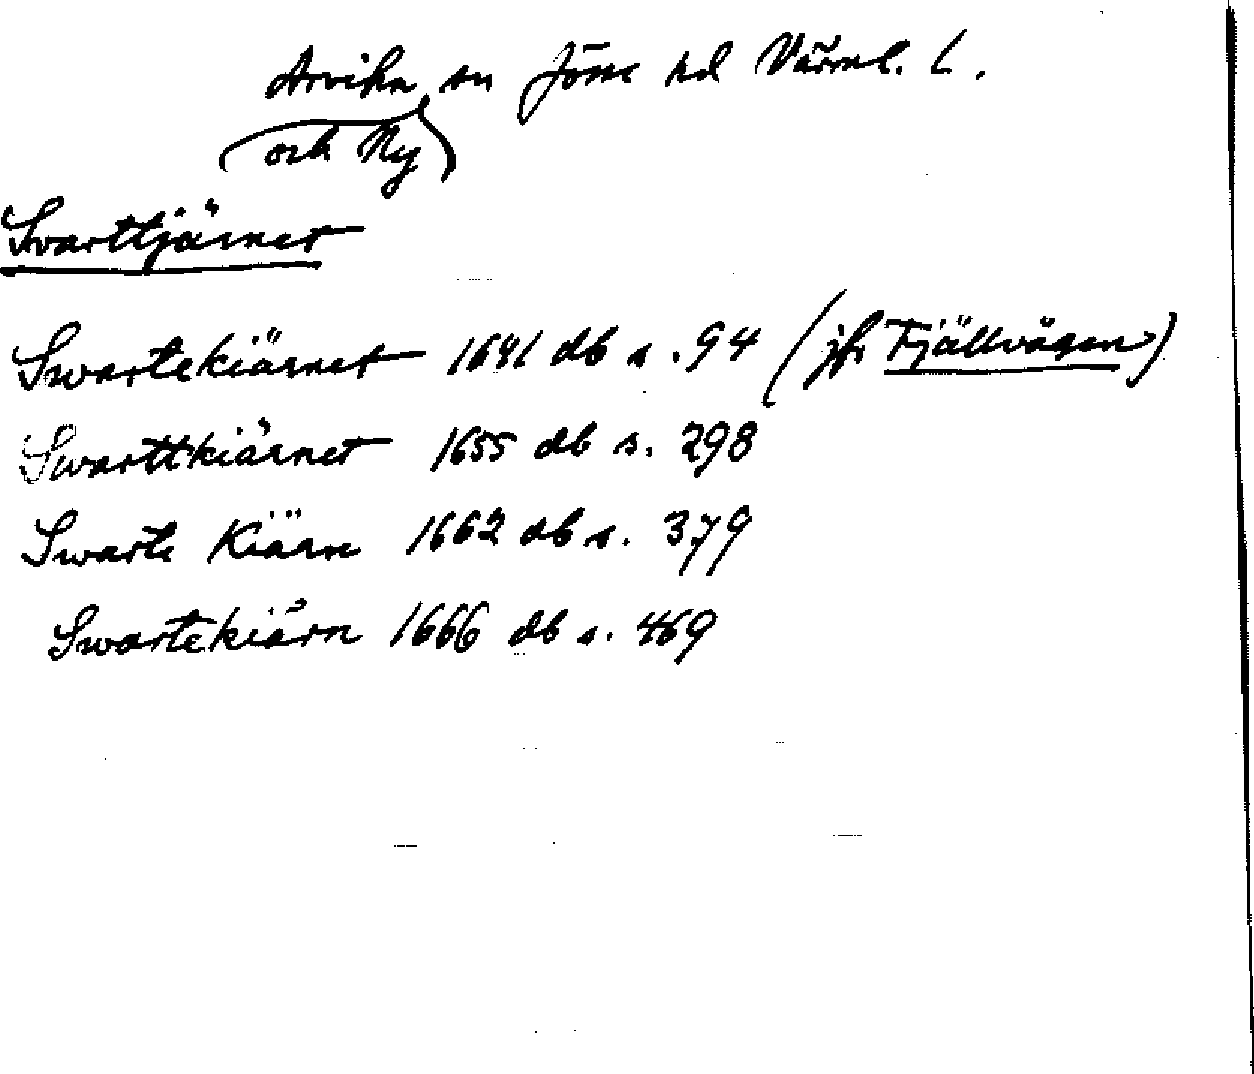 Arvika sn Jösse hd Värml. L.
(och Ny)
Svarttjärnet
Swartekiärnet 1641 db s. 94 (jfr Fjällvägen)
Swarttkiärnet 1655 db s. 298
Swarte Kiärn 1662 db s. 379
Swartekiärn 1666 db s. 469